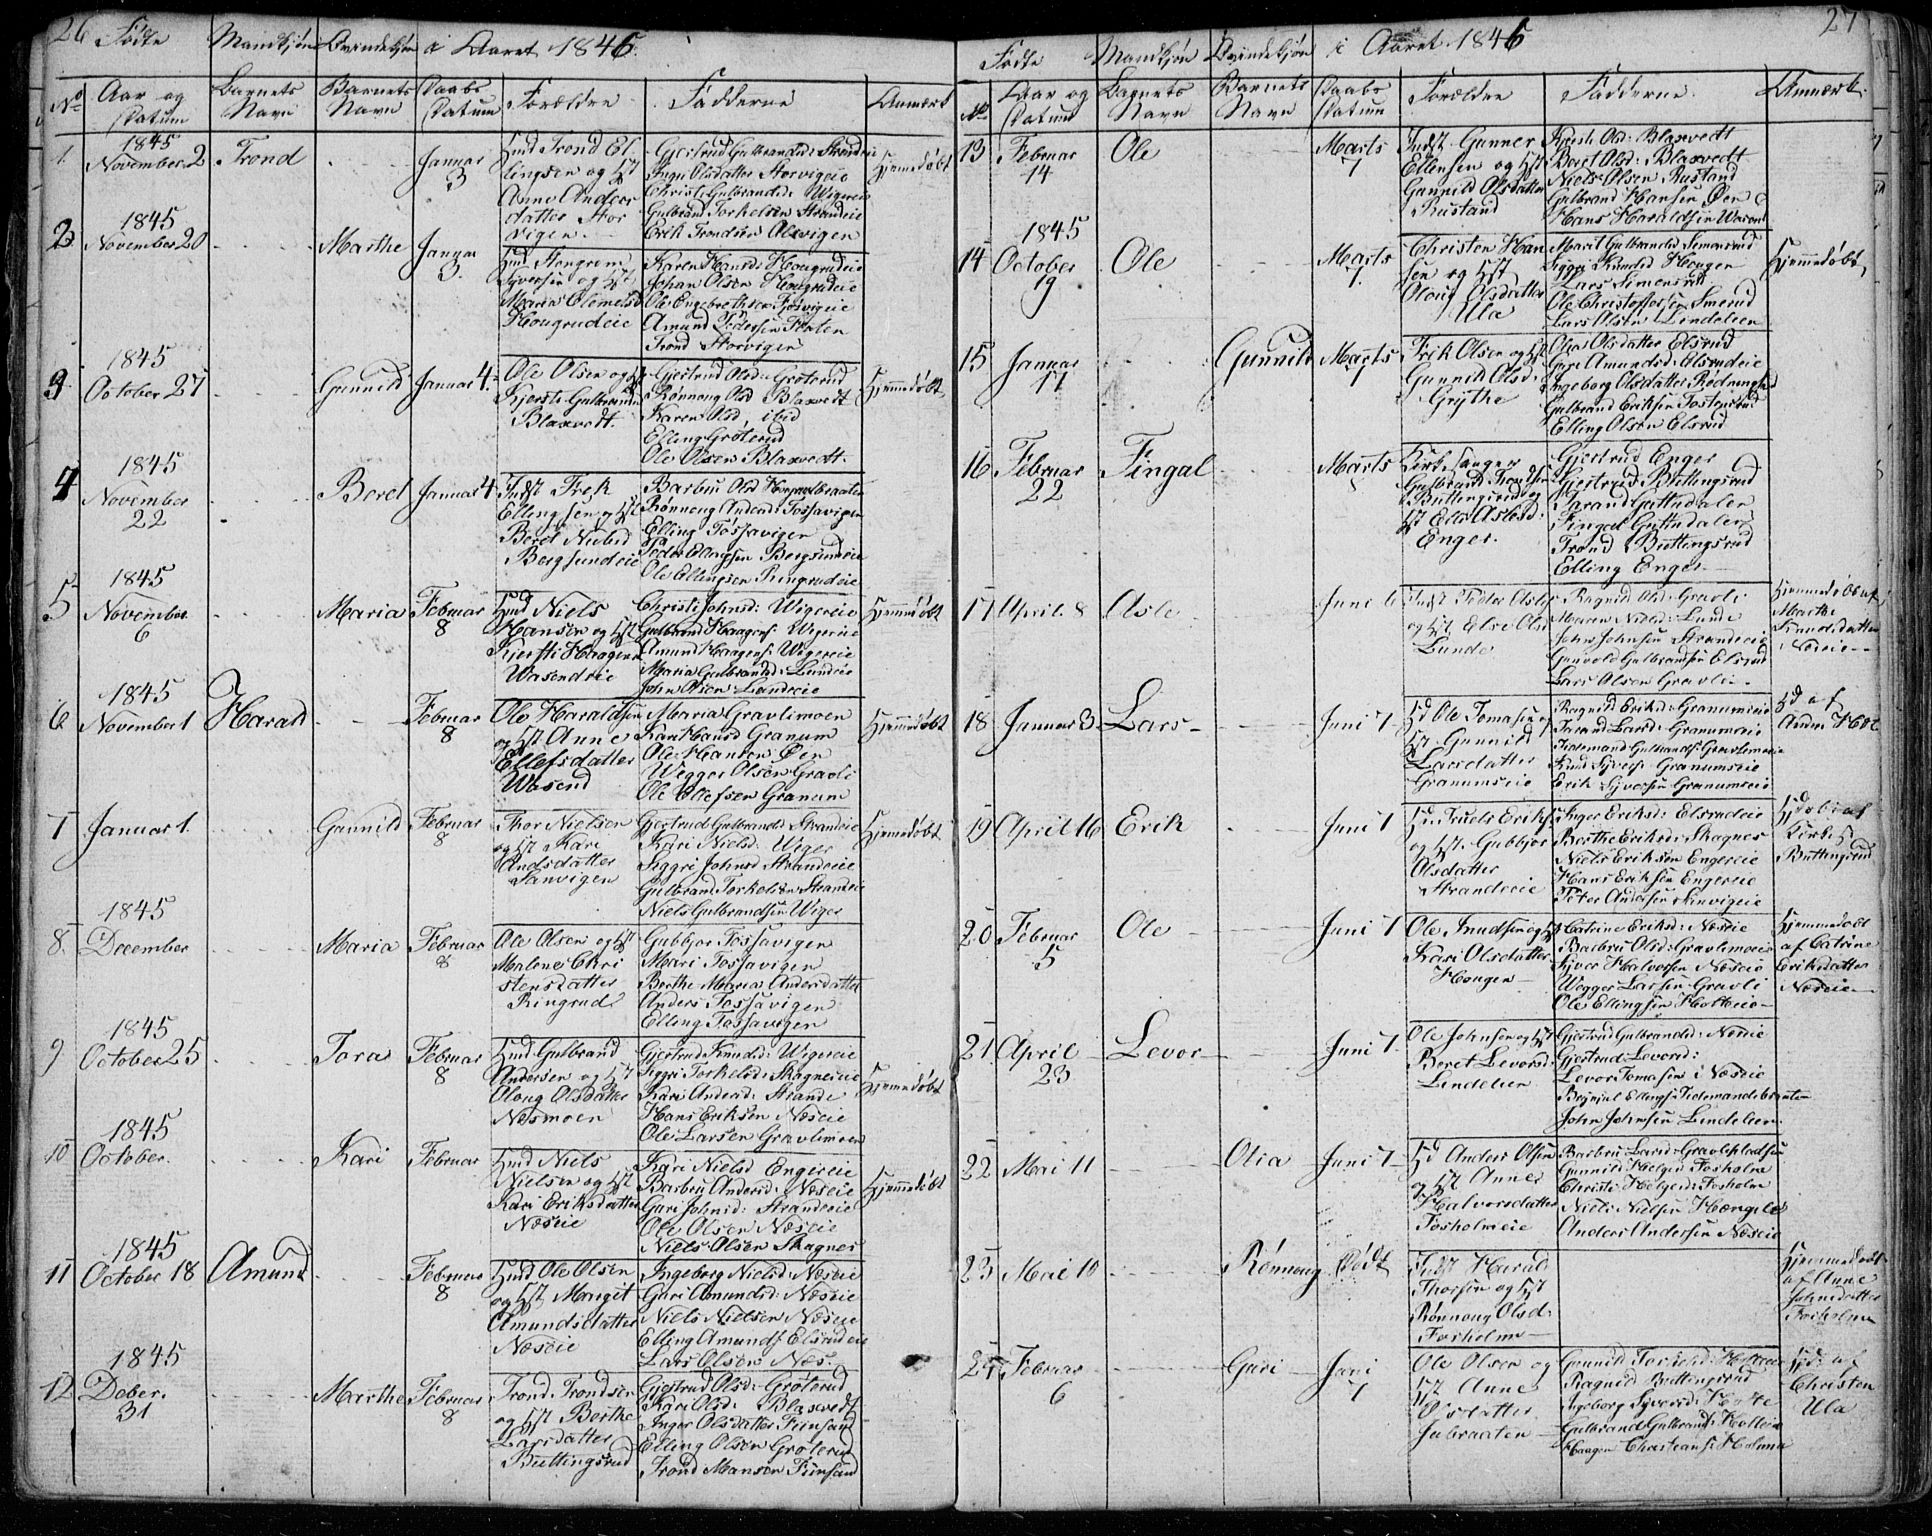 26 Födte Mandkjøn Qvindekjøn i Aaret 1846.
No Aar og Datum Barnets Navn Barnets Navn Daabs Datum Forældre Fadderne Anmærk
1. 1845 November 2 Trond Januar 3 Hmd Trond El
lingsen og Hst
Anne Anders
datter Stor
vigen
Gjertrud Gulbrandsd: Strandeie
Inger Olsdatter Storvigeie
Christi Gulbrandsd: Wigereie
Gulbrand Torkelsen Strandeie
Erik Trondsen Olsvigen
Hjemmedøbt
2. 1845 November 20 Marthe Januar 3.
Hmd
Syversen og Hst
Maren Olsmelsd
Hougrudeie
Karen Hansd: Hougrudeie
Johan Olsen Hougrudeie
Ole Engebrethsen Tjøsvigeie
Amund Pedersen Floten
Trond Storvigen
3 1845 October 27 Gunnild Januar 4.
Ole Olsen og Hst
Kjersti Gulbrandsd
Blaxvedt.
Gjertrud Olsd: Grøterud
Rønnoug Olsd Blaxvedt
Karen Olsd, ibid
Elling Grøterud
Ole Olsen Blaxvedt.
Hjemmedøbt
4 1845 November 22 Beret Januar 4
Indst Frek
Ellingsen og Hst
Beret Nubsd
Bergsundeie
Barbru Olsd
Rønnoug Andersd: Fossavigen
Elling Fossavigen
Peder Ellingsen Bergsundeie
Ole Ellingsen Ringrudeie
5 1845 November 6 Maria Februar 8
Hmd Niels
Hansen og Hst
Kjersti Haagens
Wasendeie
Christi Johnsd: Wigereie
Gulbrand Haagens: Wigereie
Amund Haagens: Wigereie
Maria Gulbrandsd: Lundeie
John Olsen Lundeie
Hjemmedøbt
6 1845 November 1 Harald Februar 8
Ole Haraldsen
og Hst Anne
Ellefsdatter
Wasend
Maria Gravlimoen
Kari Hansd Granum
Ole Hansen Øen
Wegger Olsen Gravli
Ole Ellefsen Granum
Hjemmedøbt
7 Januar 1. Gunnild Februar 8
Thor Nielsen
og Hst Kari
Andsdatter
Sanvigen
Gjertrud Gulbrandsd Strandeie
Kari Nielsd: Wiger
Siggri Johnsd Strandeie
Gulbrand Torkelsen Strandeie
Niels Gulbrandsen Wiger
Hjemmedøbt
8. 1845 December Maria Februar 8
Ole Olsen og Hst
Malene Chri
stensdatter
Ringrud
Gubbjor Fossavigen
Mari Fossavigen
Berthe Maria Andersdatter
Anders Fossavigen
Elling Fossavigen
9 1845 October 25 Tora Februar 8
Hmd Gulbrand
Andersen og Hst
Oloug Olsdatter
Næsmoen
Gjertrud Knudsd: Wigereie
Siggri Torkelsd: Skagneseie
Kari Andersd: Strande
Hans Eriksen Næseie
Ole Larsen Gravlimoen
Hjemmedøbt
10 1845 October. Kari Februar
Hmd Niels
Nielsen og Hst
Kari Eriksdatter
Næseie
Kari Nielsd Engereie
Barbru Andersd: Næseie
Guri Johnsd: Strandeie
Ole Olsen Næseie
Niels Olsen Skagnes
Hjemmedøbt
11 1845 October 18 Amund Februar 8
Hmd Ole Olsen
og Hst Mangit
Amundsdatter
Næseie
Ingeborg Nielsd: Næseie
Guri Amundsd: Næseie
Niels Nielsen Næseie
Elling Amunds: Elsrudeie
Lars Olsen Næs.
12 1845 Deber. 31 Marthe Februar 8
Trond Trondsen
og Hst Berthe
Larsdatter
Buttingsrud
Gjertrud Olsd: Grøterud
Kari Olsd: Blaxvedt
Inger Olsdatter Finsand
Elling Olsen Grøterud
Trond Hansen Finsand
27
Födte Mandkjøn Qvindekjøn i Aaret 1846
No Aar og Datum Barnets Navn Barnets Navn Daabs Datum Forældre Fadderne Anmærk.
13 Februar 14 Ole Marts 7
Indst Gunner
Ellensen og Hst
Gunnild Olsdatter
Rustand
Kjersti Olsd: Blaxvedt
Beret Olsd: Blaxvedt
Niels Olsen Rustand
Gulbrand Hansen Øen
Hans Haraldsen Wasend
14 1845 October 19 Ole Marts 7.
Christen Han
sen og Hst
Oloug Olsdatter
Ula
Marit Gulbrandsd Semensrud
Siggri Knudsd Hougen
Lars Simensrud
Ole Christoffersen Smerud
Lars Olsen Lindelien
Hjemmedøbt,
15 Januar 17 Gunnild Marts 7
Erik Olsen og Hst
Gunnild Olsd:
Grythe
Olea Olsdatter Elsrud
Guri Amundsd: Elsrudeie
Ingeborg Olsdatter Rødningsand
Gulbrand Eriksen Tostensrud
Elling Olsen Elsrud
16 Februar 22 Fingal Marts 8
Kirkesanger
Gulbrand Trondsen
Buttingsrud og
Hst Elli Aslesd:
Enger.
Gjertrud Enger
Gjertrud Buttingsrud
Jarand Guttudalen
Fingal Guttudalen
Trond Buttingsrud
Elling Enger
17 April 8 Asle Juni 6
Indst Peder Asles
og Hst Else Olsd
Lunde
Ragnild Olsd: Gravli
Maren Nielsd: Lunde
John Johnsen Strandeie
Gunvold Gulbrandsen Elsrud
Lars Olsen Gravli
Hjemmedøbt af
Marthe
Knudsdatter
Næseie
18 Januar 3 Lars Juni 7
Hd Ole Tomasen og
Hst Gunnild
Larsdatter
Granumseie
Ragnild Eriksd: Granumseie
Jarand Larsd: Granumseie
Tidemand Gulbrands: Gravlimoeie
Knud Syvers: Granumseie
Erik Syversen Granumseie
Hd af
Anders Hval
19 April 16 Erik Juni 7
Hd. Truels Eriks
og Hst. Gubbjor
Olsdatter
Strandeie
Inger Eriksd: Elsrudeie
Berthe Eriksd: Skagnes
Niels Eriksen Engereie
Hans Eriksen Engereie
Peter Andersen Sanvigeie
Hjdøbt af
Kirkes
Buttingsrud
20 Februar 5 Ole Juni 7
Ole Knudsen og Hst
Kari Olsdatter
Hougen
Catrine Eriksd: Næseie
Barbru Olsd: Gravlimoeie
Syver Halvorsen Næseie
Wegger Larsen Gravli
Ole Ellingsen Holteeie
Hjemmedøbt
af Catrine
Eriksdatter
Næseie
21. April 23 Levor Juni 7.
Ole Johnsen og Hst
Beret Levorsd:
Lindelien
Gjertrud Gulbrandsd: Næseie
Gjertrud Levorsd:
Levor Tomasen i Næseie
Ellings: Tidemandsbraaten
John Johnsen Lindelien
22 Mai 11 Olia Juni 7
Hd Anders Olsen
og Hst Anne
Halvorsdatter
Fosholmeie
Barbru Larsd: Gravlipladsen
Gunnild Helgesd: Fosholm
Christi Helgesd: Fosholm
Niels Nielsen Hængsle
Anders Andersen Næseie
23 Mai 10 Rønnoug Død
Indst Harald
Thorsen og Hst
Rønnoug Olsd:
Fosholm
Hjemmedøbt
af Anne
Johnsdatter
Fosholm
24 Februar 6 Guri Juni 7
Ole Olsen og
Hst Anne
Olsdatter
Gunnild
Ragnild Buttingsrud
Ingeborg Syversd:
Gulbrand Gulbrands: Holteeie
Haagen Christians: Holma
Hjd: af
Christen
Ula